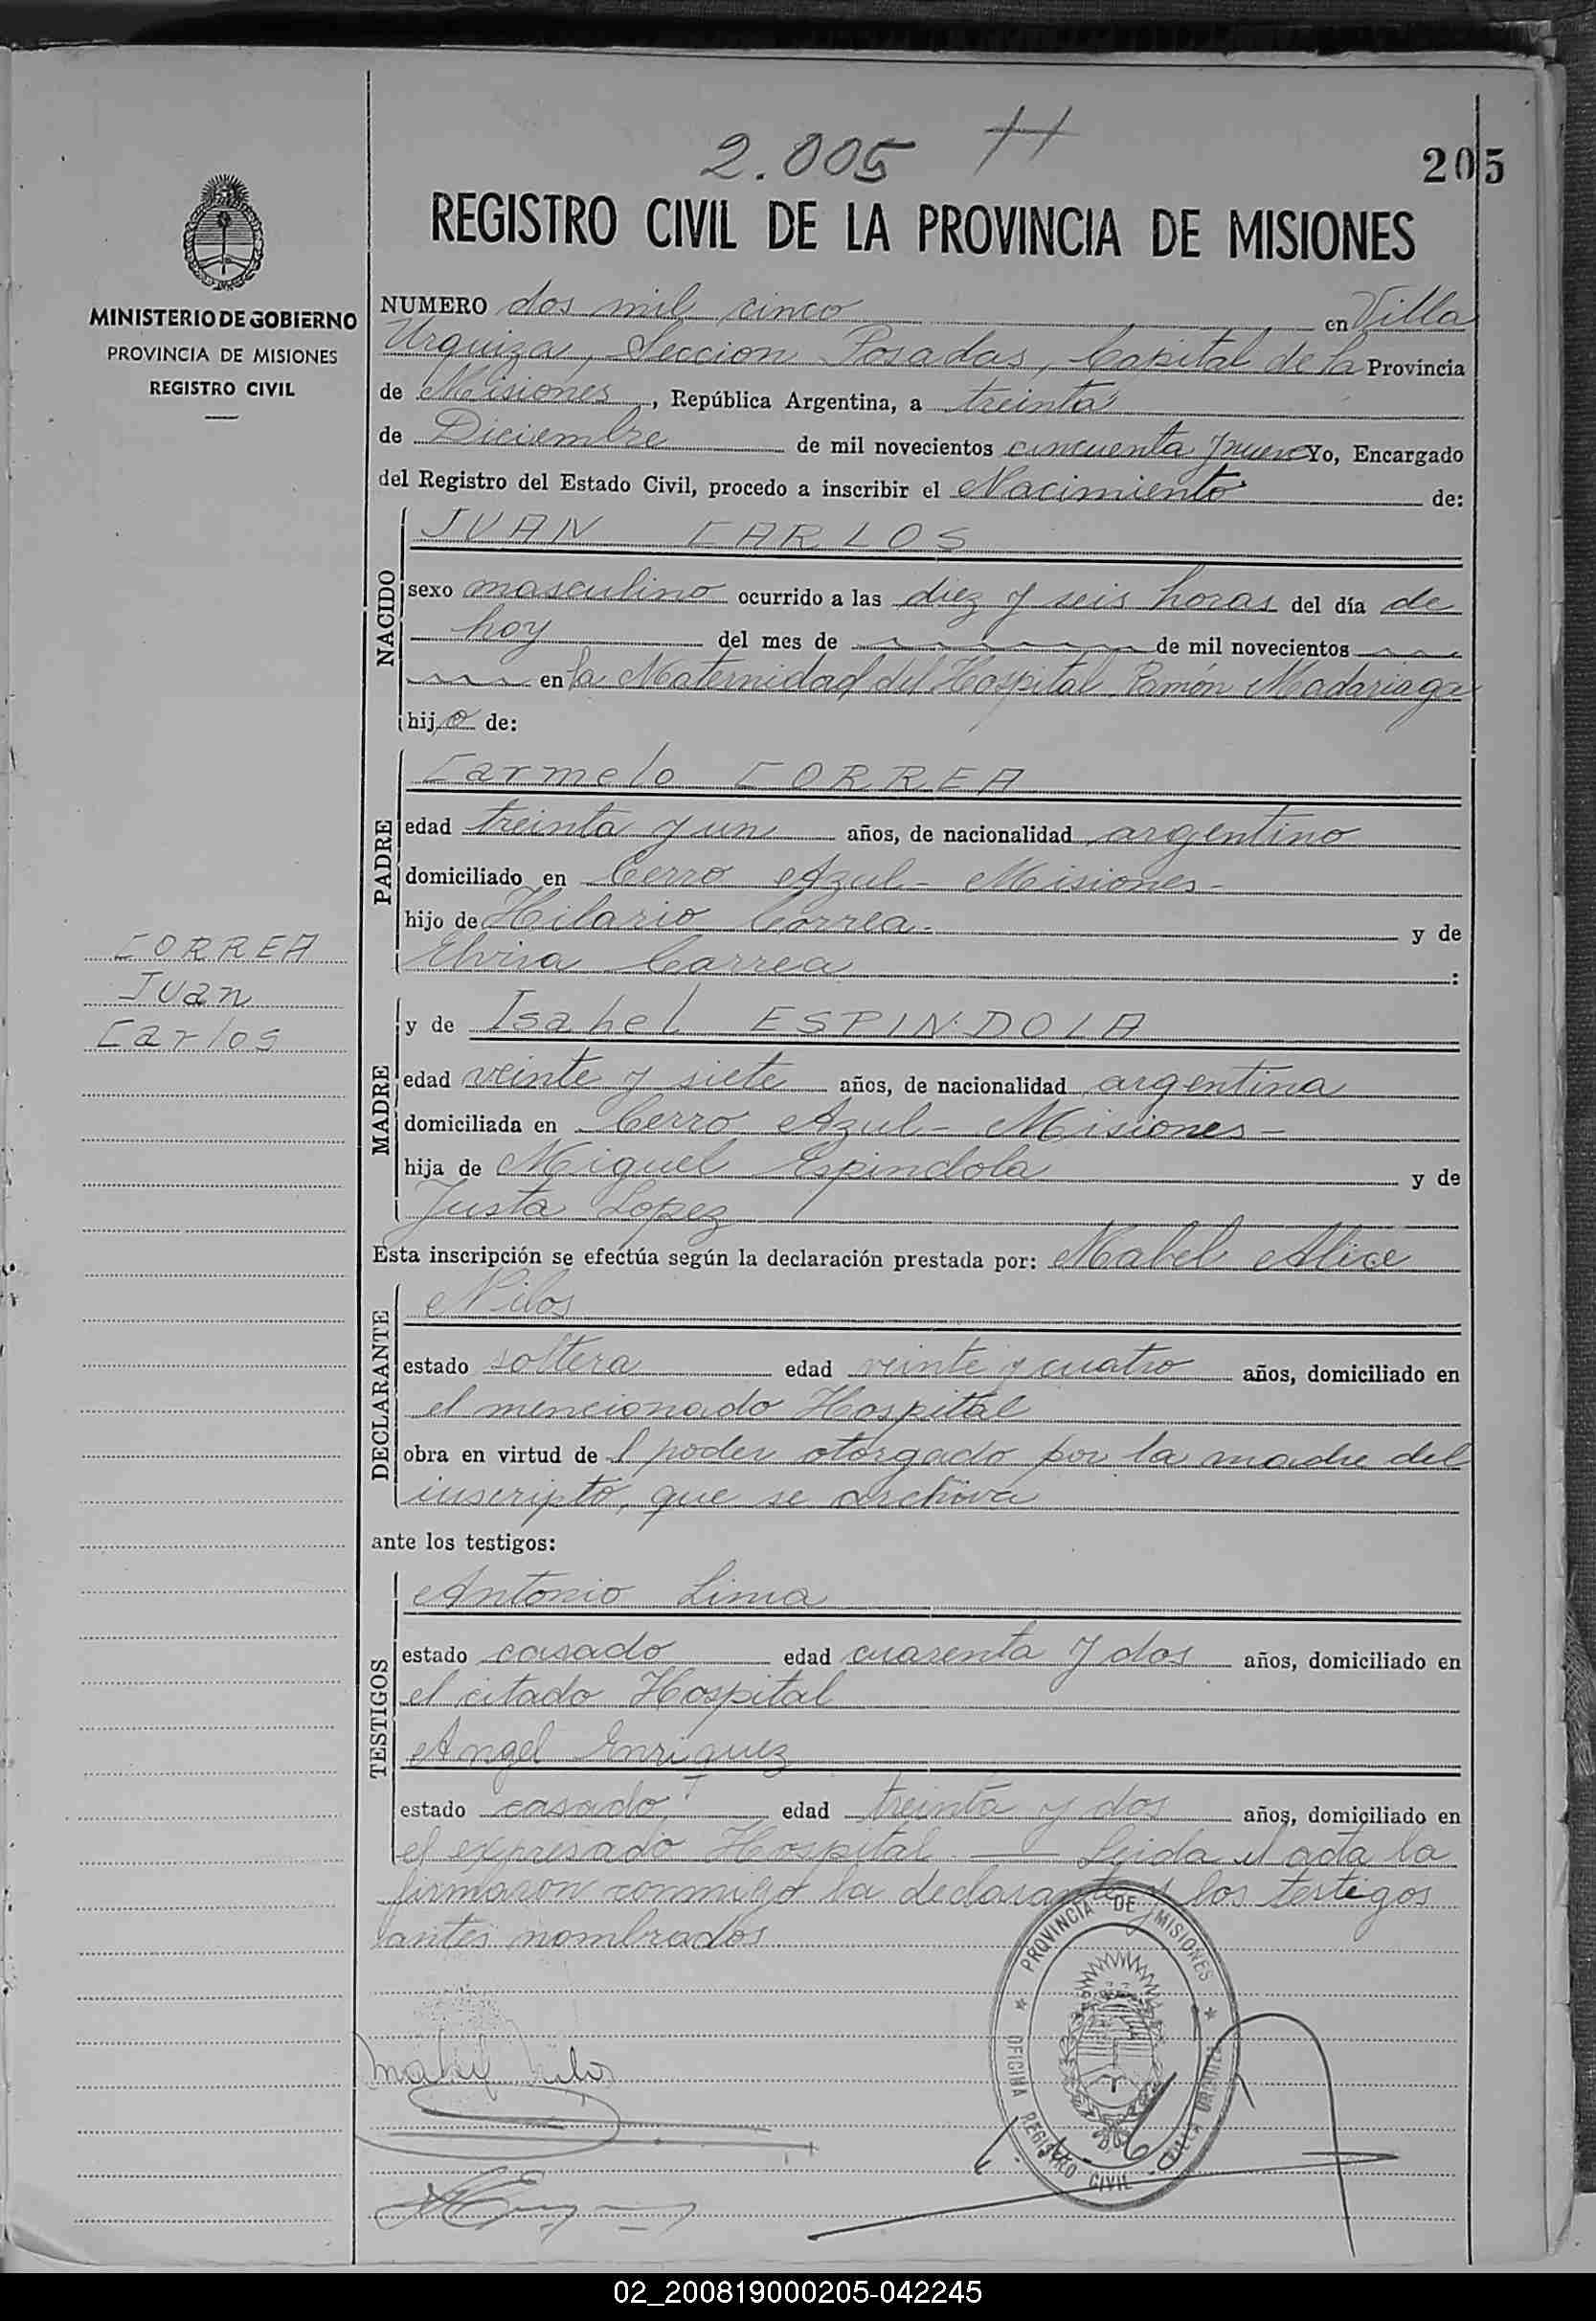 2.005 H
205
REGISTRO CIVIL DE LA PROVINCIA DE MISIONES
MINISTERIO DE GOBIERNO
PROVINCIA DE MISIONES
REGISTRO CIVIL
NUMERO dos mil cinco en Villa
Urquiza, Seccion Posadas, Capital de la Provincia
de Misiones, República Argentina, a treinta
de Diciembre de mil novecientos cincuenta y nueve Yo, Encargado
del Registro del Estado Civil, procedo a inscribir el Nacimiento de:
NACIDO
JUAN CARLOS
sexo masculino ocurrido a las diez y seis horas del día de
hoy del mes de de mil novecientos
en la Maternidad del Hospital Ramón Madariaga
hijo de:
PADRE
Carmelo CORREA
edad treinta y un años, de nacionalidad argentino
domiciliado en Cerro Azul - Misiones -
hijo de Hilario Correa - y de
Elvira Correa :
CORREA
Juan
Carlos
MADRE
y de Isabel ESPINDOLA
edad veinte y siete años, de nacionalidad argentina
domiciliada en Cerro Azul - Misiones -
hija de Miguel Espindola y de
Justa Lopez
Esta inscripción se efectúa según la declaración prestada por: Mabel Alice
DECLARANTE
Nilos
estado soltera edad veinte y cuatro años, domiciliado en
el mencionado Hospital
obra en virtud de l poder otorgado por la madre del
inscripto, que se archiva
ante los testigos:
TESTIGOS
Antonio Lima
estado casado edad cuarenta y dos años, domiciliado en
el citado Hospital
Angel Enriquez
estado casado edad treinta y dos años, domiciliado en
el expresado Hospital — Leida el acta la
firmaron conmigo la declarante y los testigos
antes nombrados
PROVINCIA DE MISIONES
OFICINA REGISTRO CIVIL - VILLA URQUIZA
Mabel Nilos
02_200819000205-042245